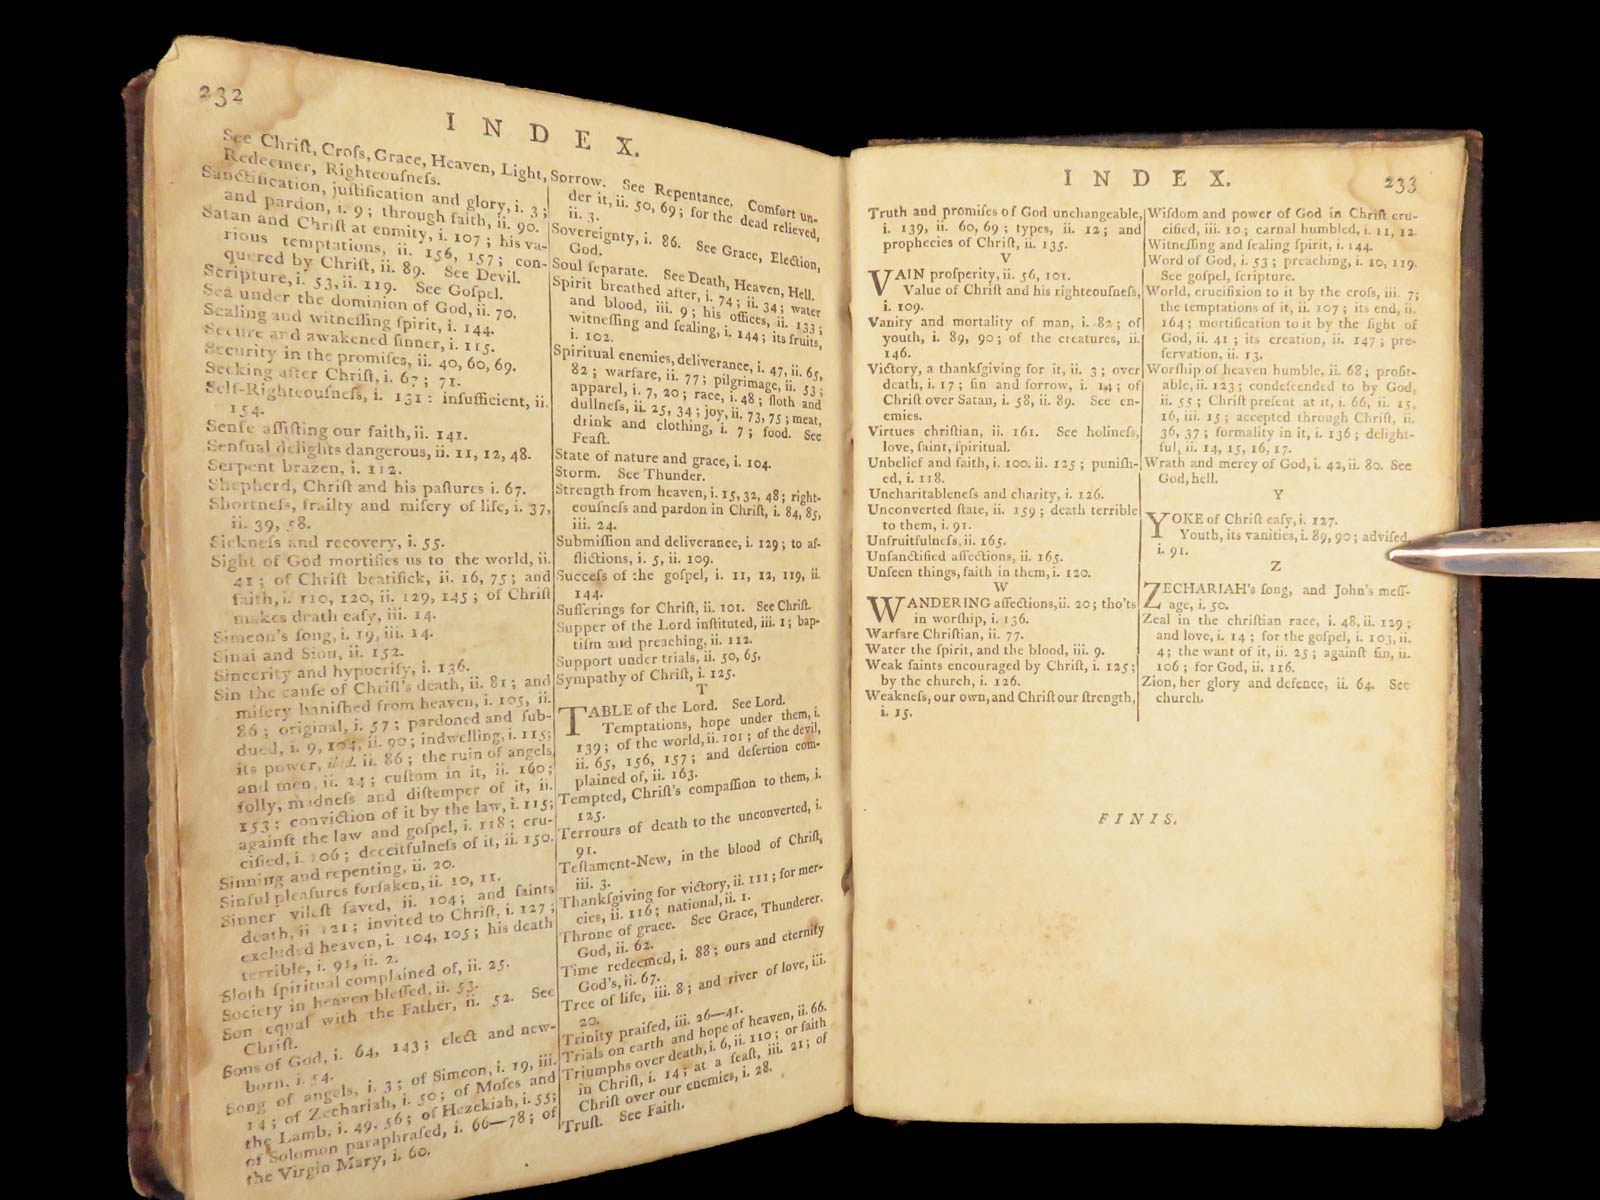 232
INDEX.
See Chriſt, Croſs, Grace, Heaven, Light,
Redeemer, Righteouſneſs.
Sanctification, juſtification and glory, i. 3;
and pardon, i. 9; through faith, ii. 90.
Satan and Chriſt at enmity, i. 107; his va-
rious temptations, ii. 156, 157; con-
quered by Chriſt, ii. 89. See Devil.
Scripture, i. 53, ii. 119. See Goſpel.
Sea under the dominion of God, ii. 70.
Sealing and witneſſing ſpirit, i. 144.
Secure and awakened ſinner, i. 115.
Security in the promiſes, ii. 40, 60, 69.
Seeking after Chriſt, i. 67; 71.
Self-Righteouſneſs, i. 131: inſufficient, ii.
154.
Senſe aſſiſting our faith, ii. 141.
Senſual delights dangerous, ii. 11, 12, 48.
Serpent brazen, i. 112.
Shepherd, Chriſt and his paſtures i. 67.
Shortneſs, frailty and miſery of life, i. 37,
ii. 39, 58.
Sickneſs and recovery, i. 55.
Sight of God mortifies us to the world, ii.
41; of Chriſt beatifick, ii. 16, 75; and
faith, i. 110, 120, ii. 129, 145; of Chriſt
makes death eaſy, iii. 14.
Simeon's ſong, i. 19, iii. 14.
Sinai and Sion, ii. 152.
Sincerity and hypocriſy, i. 136.
Sin the cauſe of Chriſt's death, ii. 81; and
miſery baniſhed from heaven, i. 105, ii.
86; original, i. 57; pardoned and ſub-
dued, i. 9, 104, ii. 90; indwelling, i. 115;
its power, ibid. ii. 86; the ruin of angels
and men, ii. 24; cuſtom in it, ii. 160;
folly, madneſs and diſtemper of it, ii.
153; conviction of it by the law, i. 115;
againſt the law and goſpel, i. 118; cru-
cified, i. 106; deceitfulneſs of it, ii. 150.
Sinning and repenting, ii. 20.
Sinful pleaſures forſaken, ii. 10, 11.
Sinner vileſt ſaved, ii. 104; and ſaints
death, ii. 121; invited to Chriſt, i. 127;
excluded heaven, i. 104, 105; his death
terrible, i. 91, ii. 2.
Sloth ſpiritual complained of, ii. 25.
Society in heaven bleſſed, ii. 53.
Son equal with the Father, ii. 52. See
Chriſt.
Sons of God, i. 64, 143; elect and new-
born, i. 54.
Song of angels, i. 3; of Simeon, i. 19, iii.
14; of Zechariah, i. 50; of Moſes and
the Lamb, i. 49, 56; of Hezekiah, i. 55;
of Solomon paraphraſed, i. 66—78; of
the Virgin Mary, i. 60.
Sorrow. See Repentance. Comfort un-
der it, ii. 50, 69; for the dead relieved,
ii. 3.
Sovereignty, i. 86. See Grace, Election,
God.
Soul ſeparate. See Death, Heaven, Hell.
Spirit breathed after, i. 74; ii. 34; water
and blood, iii. 9; his offices, ii. 133;
witneſſing and ſealing, i. 144; its fruits,
i. 102.
Spiritual enemies, deliverance, i. 47, ii. 65,
82; warfare, ii. 77; pilgrimage, ii. 53;
apparel, i. 7, 20; race, i. 48; ſloth and
dullneſs, ii. 25, 34; joy, ii. 73, 75; meat,
drink and clothing, i. 7; food. See
Feaſt.
State of nature and grace, i. 104.
Storm. See Thunder.
Strength from heaven, i. 15, 32, 48; right-
eouſneſs and pardon in Chriſt, i. 84, 85,
iii. 24.
Submiſſion and deliverance, i. 129; to af-
flictions, i. 5, ii. 109.
Succeſs of the goſpel, i. 11, 12, 119, ii.
144.
Sufferings for Chriſt, ii. 101. See Chriſt.
Supper of the Lord inſtituted, iii. 1; bap-
tiſm and preaching, ii. 112.
Support under trials, ii. 50, 65.
Sympathy of Chriſt, i. 125.
T
TABLE of the Lord. See Lord.
Temptations, hope under them, i.
139; of the world, ii. 101; of the devil,
ii. 65, 156, 157; and deſertion com-
plained of, ii. 163.
Tempted, Chriſt's compaſſion to them, i.
125.
Terrours of death to the unconverted, i.
91.
Teſtament-New, in the blood of Chriſt,
iii. 3.
Thankſgiving for victory, ii. 111; for mer-
cies, ii. 116; national, ii. 1.
Throne of grace. See Grace, Thunderer.
God, ii. 62.
Time redeemed, i. 88; ours and eternity
God's, ii. 67.
Tree of life, iii. 8; and river of love, iii.
20.
Trinity praiſed, iii. 26—41.
Trials on earth and hope of heaven, ii. 66.
Triumphs over death, i. 6, ii. 110; or faith
in Chriſt, i. 14; at a feaſt, iii. 21; of
Chriſt over our enemies, i. 28.
Truſt. See Faith.
INDEX.
233
Truth and promiſes of God unchangeable,
i. 139, ii. 60, 69; types, ii. 12; and
prophecies of Chriſt, ii. 135.
V
VAIN proſperity, ii. 56, 101.
Value of Chriſt and his righteouſneſs,
i. 109.
Vanity and mortality of man, i. 82; of
youth, i. 89, 90; of the creatures, ii.
146.
Victory, a thankſgiving for it, ii. 3; over
death, i. 17; ſin and ſorrow, i. 14; of
Chriſt over Satan, i. 58, ii. 89. See en-
emies.
Virtues chriſtian, ii. 161. See holineſs,
love, ſaint, ſpiritual.
Unbelief and faith, i. 100. ii. 125; puniſh-
ed, i. 118.
Uncharitableneſs and charity, i. 126.
Unconverted ſtate, ii. 159; death terrible
to them, i. 91.
Unfruitfulneſs, ii. 165.
Unſanctified affections, ii. 165.
Unſeen things, faith in them, i. 120.
W
WANDERING affections, ii. 20; tho'ts
in worſhip, i. 136.
Warfare Chriſtian, ii. 77.
Water the ſpirit, and the blood, iii. 9.
Weak ſaints encouraged by Chriſt, i. 125;
by the church, i. 126.
Weakneſs, our own, and Chriſt our ſtrength,
i. 15.
Wiſdom and power of God in Chriſt cru-
cified, iii. 10; carnal humbled, i. 11, 12.
Witneſſing and ſealing ſpirit, i. 144.
Word of God, i. 53; preaching, i. 10, 119.
See goſpel, ſcripture.
World, crucifixion to it by the croſs, iii. 7;
the temptations of it, ii. 107; its end, ii.
164; mortification to it by the ſight of
God, ii. 41; its creation, ii. 147; pre-
ſervation, ii. 13.
Worſhip of heaven humble, ii. 68; profit-
able, ii. 123; condeſcended to by God,
ii. 55; Chriſt preſent at it, i. 66, ii. 15,
16, iii. 15; accepted through Chriſt, ii.
36, 37; formality in it, i. 136; delight-
ful, ii. 14, 15, 16, 17.
Wrath and mercy of God, i. 42, ii. 80. See
God, hell.
Y
YOKE of Chriſt eaſy, i. 127.
Youth, its vanities, i. 89, 90; adviſed,
i. 91.
Z
ZECHARIAH's ſong, and John's meſſ-
age, i. 50.
Zeal in the chriſtian race, i. 48, ii. 129;
and love, i. 14; for the goſpel, i. 103, ii.
4; the want of it, ii. 25; againſt ſin, ii.
106; for God, ii. 116.
Zion, her glory and defence, ii. 64. See
church.
FINIS.